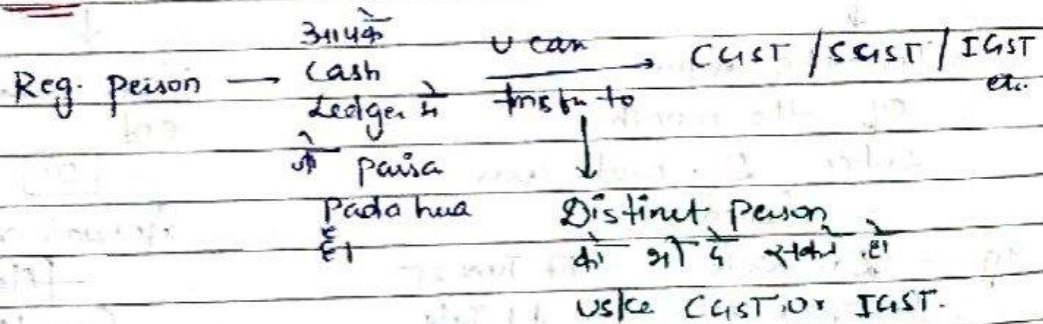 Reg. person → आपके Cash Ledger में जो paisa Pada hua है।
u can trnsfr to → CGST / SGST / IGST etc.
↓
Distinct person
को भी दे सकते हो
uske CGST or IGST.